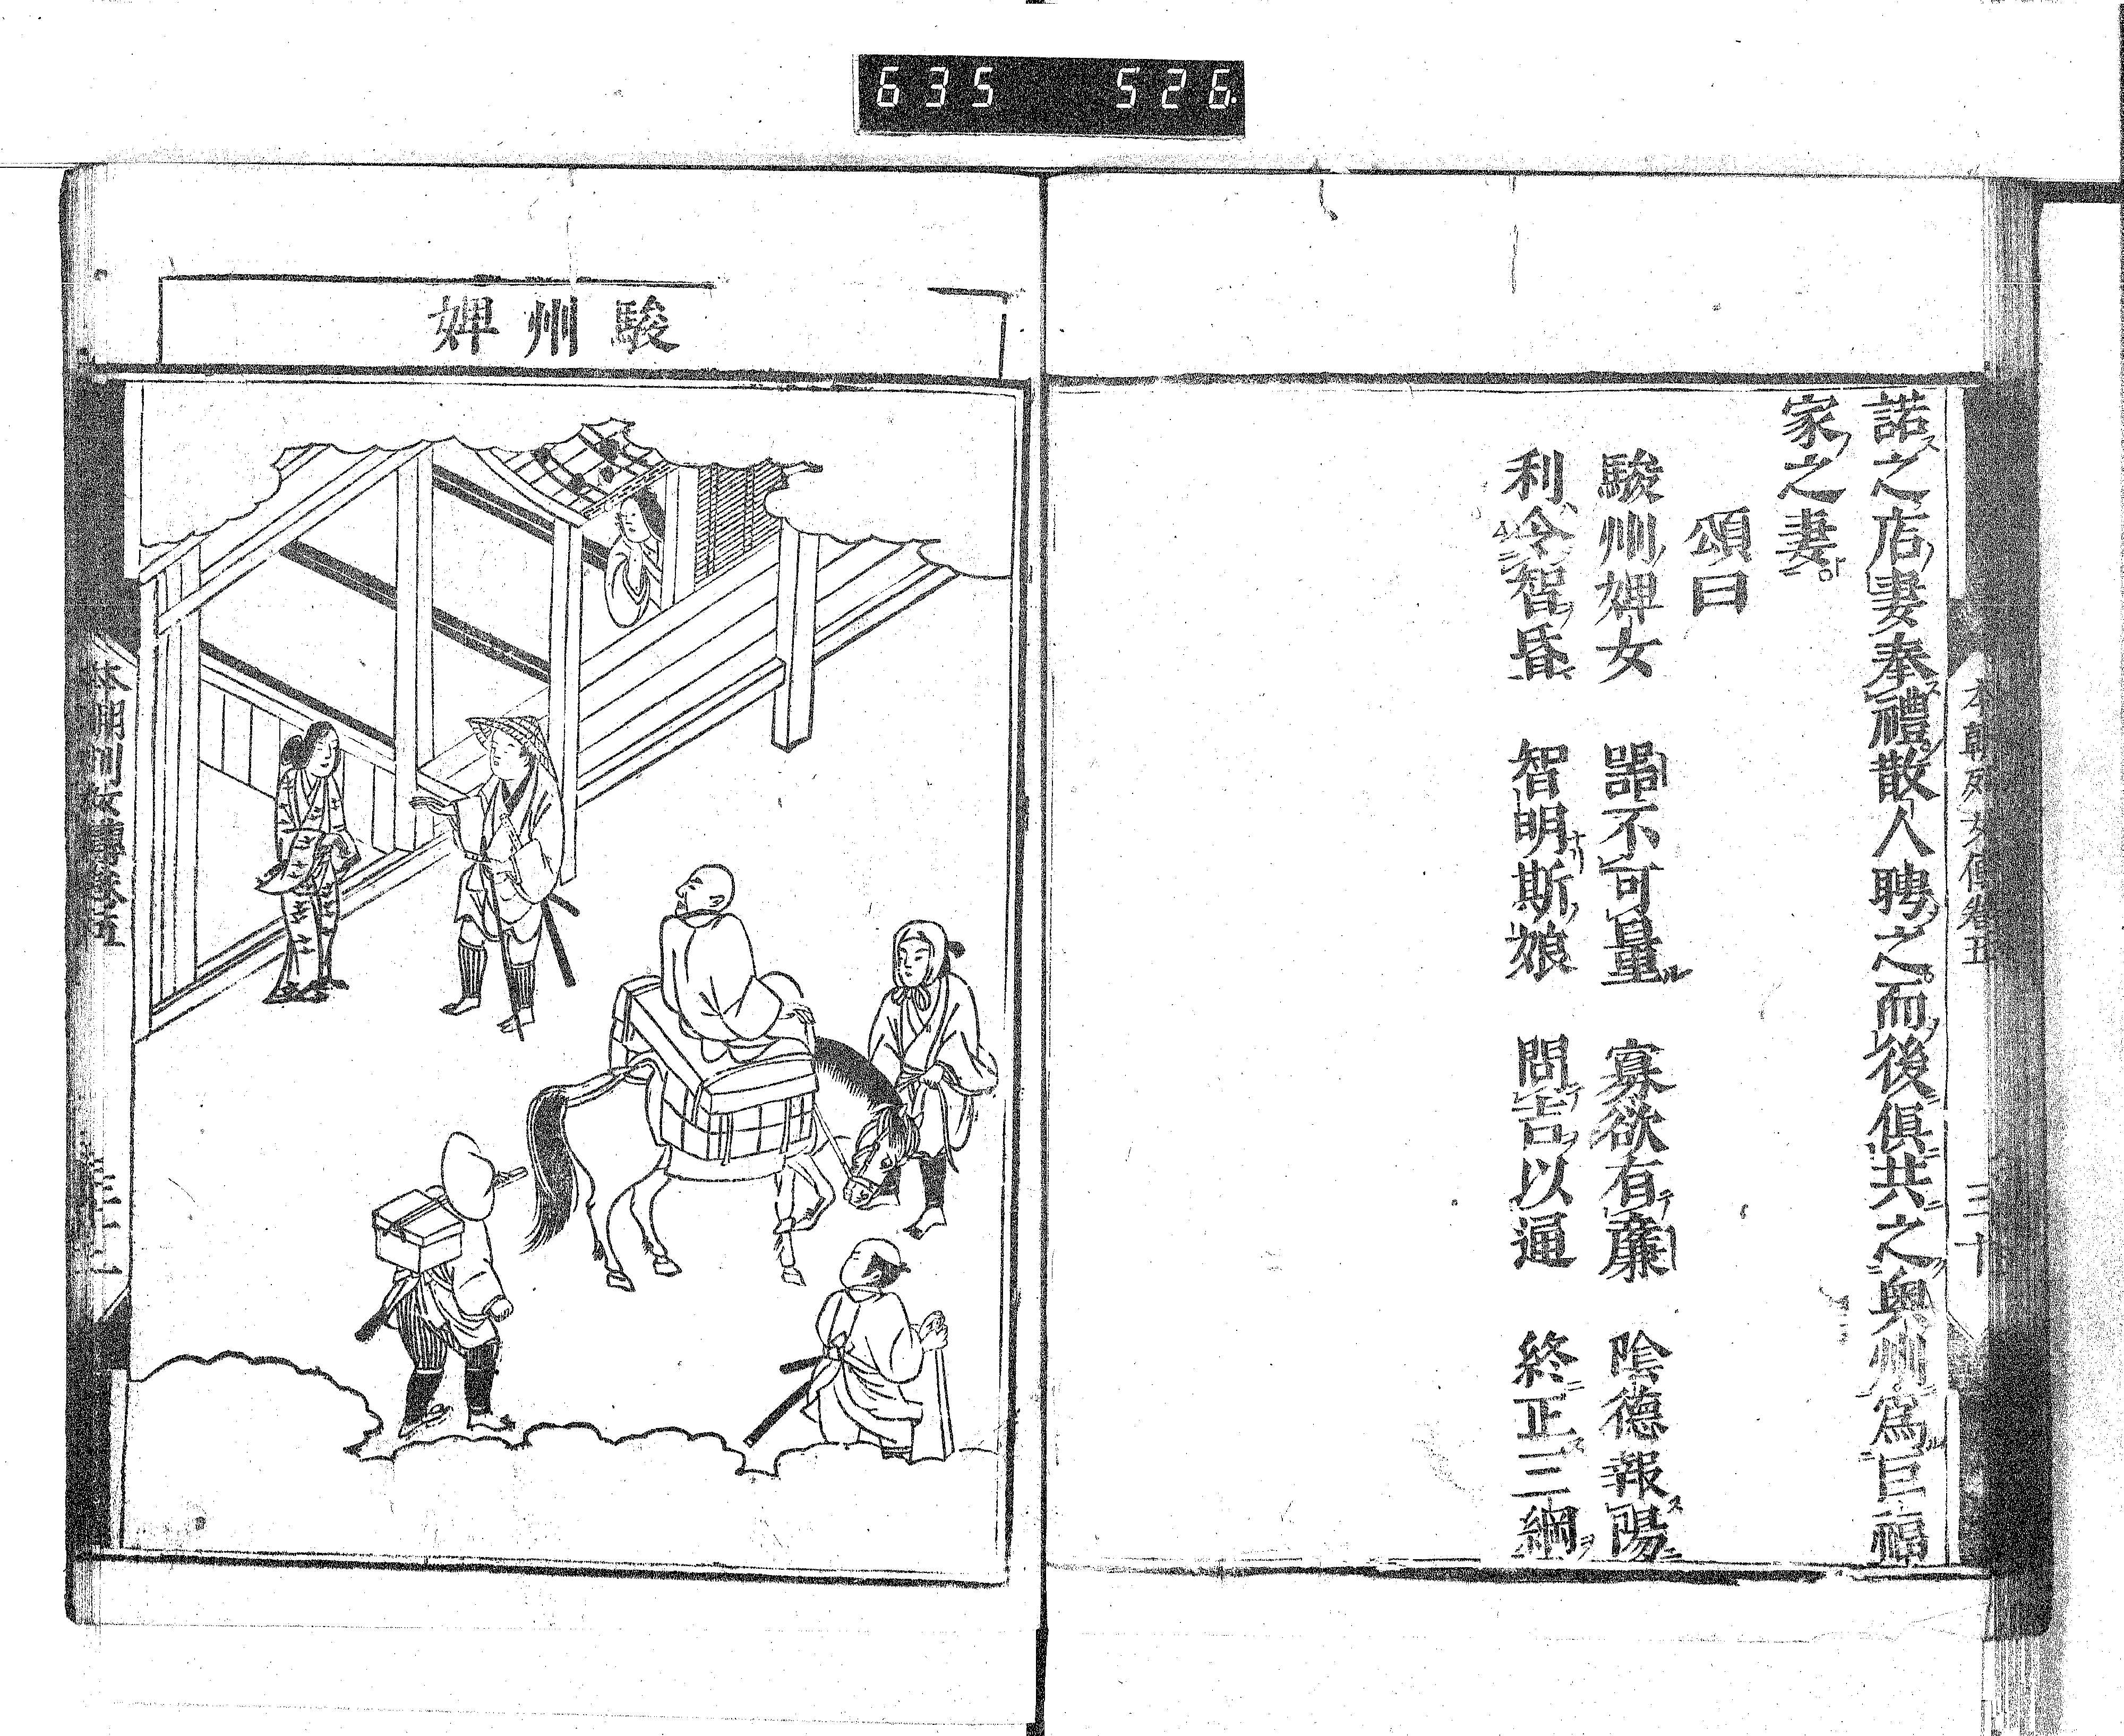 635 526.
本朝列女傳卷五 三十
諾之店妻奉禮散人聘之而後俱共之奥州爲巨福
家之妻
頌曰
駿州婢女 噐不可量 寡欲有廉 陰德報陽
利令智昏 智明斯娘 問吉以逼 終正三綱
駿州婢
本朝列女傳卷五